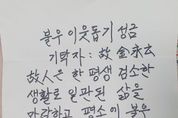 불우이웃돕기 성금
기탁자: 故 金永太
故人은 한평생 검소한
생활로 일관된 삶을
마감하고 평소에 불우